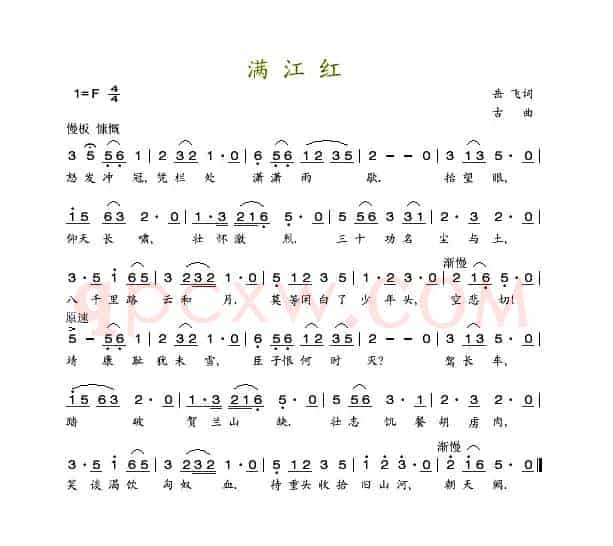 满 江 红
1=F 4/4
岳 飞词
古 曲
慢板 慷慨
3 5 56 | 1 2 32 1·0 | 6 56 12 35 | 2 - - 0 | 3 13 5·0 |
怒 发 冲 冠, 凭 栏 处 潇 潇 雨 歇. 抬 望 眼,
15 63 2·0 | 1·3 216 5·0 | 5 6 3 31 | 2·3 2·0 |
仰天 长 啸, 壮 怀 激 烈. 三 十 功 名 尘 与 土,
渐慢
3·5 1 65 | 3 232 1·0 | 5 123 5 1 2 3 | 2 16 5·0 |
八 千 里 路 云 和 月. 莫 等 闲 白 了 少 年 头, 空 悲 切!
原速
5 - 5 1 2 32 1·0 | 6 56 12 35 | 2 - - 0 | 3 13 5·0 |
靖 康 耻 犹 未 雪, 臣 子 恨 何 时 灭? 驾 长 车,
15 63 2·0 | 1·3 216 5·0 | 5 6 3 31 | 2·3 2·0 |
踏 破 贺 兰 山 缺. 壮 志 饥 餐 胡 虏 肉,
渐慢
3·5 1 65 | 3 232 1·0 | 5 123 5 1 2 3 | 2 16 5·0 ‖
笑 谈 渴 饮 匈 奴 血, 待 重 头 收 拾 旧 山 河, 朝 天 阙.
qpcxw.COM